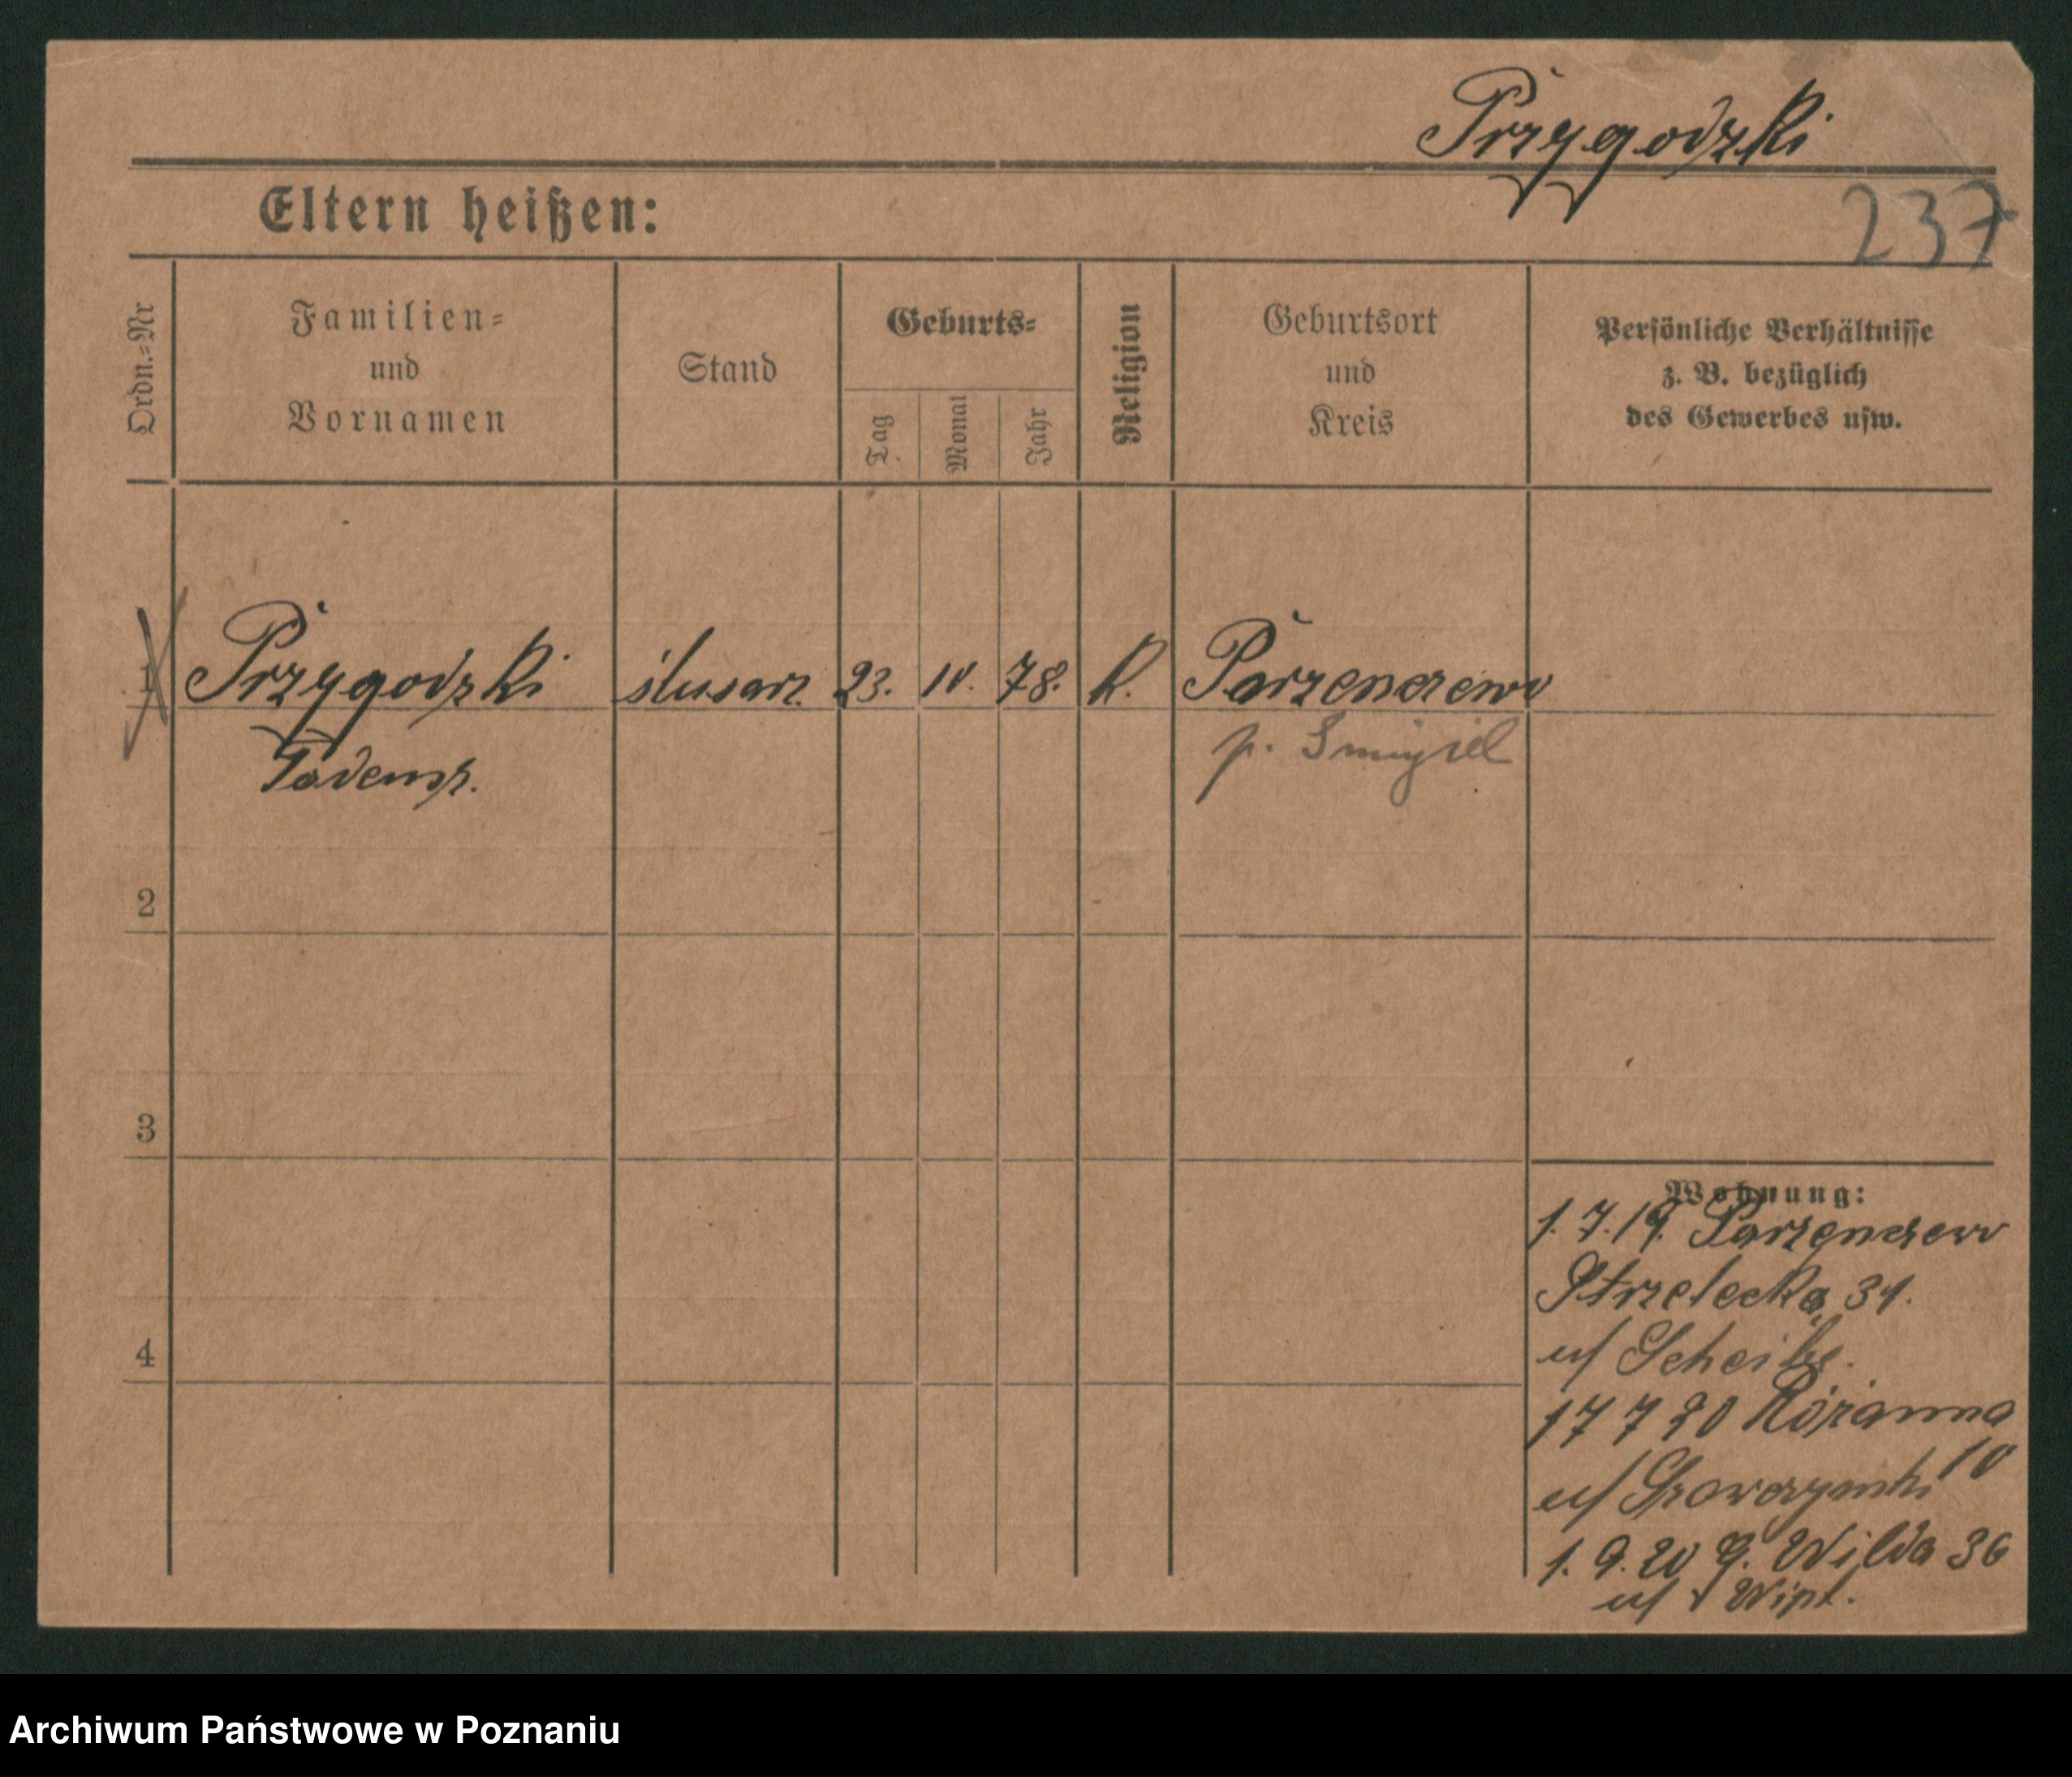 Przygodzki
237
Eltern heißen:
Ordn.=Nr
Familien=
und
Vornamen
Stand
Geburts=
Tag
Monat
Jahr
Religion
Geburtsort
und
Kreis
Persönliche Verhältnisse
z. B. bezüglich
des Gewerbes usw.
1 Przygodzki ślusarz 23. 10. 78. k. Parzenczewo
Tadeusz. p. Smigiel
2
3
4
Wohnung:
1.7.19. Parzenczewo
Strzelecka 31.
u/ Scheibe.
17 7 20 Różanna
10
u/
1. 9. 20 G. Wilda 36
u/
Archiwum Państwowe w Poznaniu